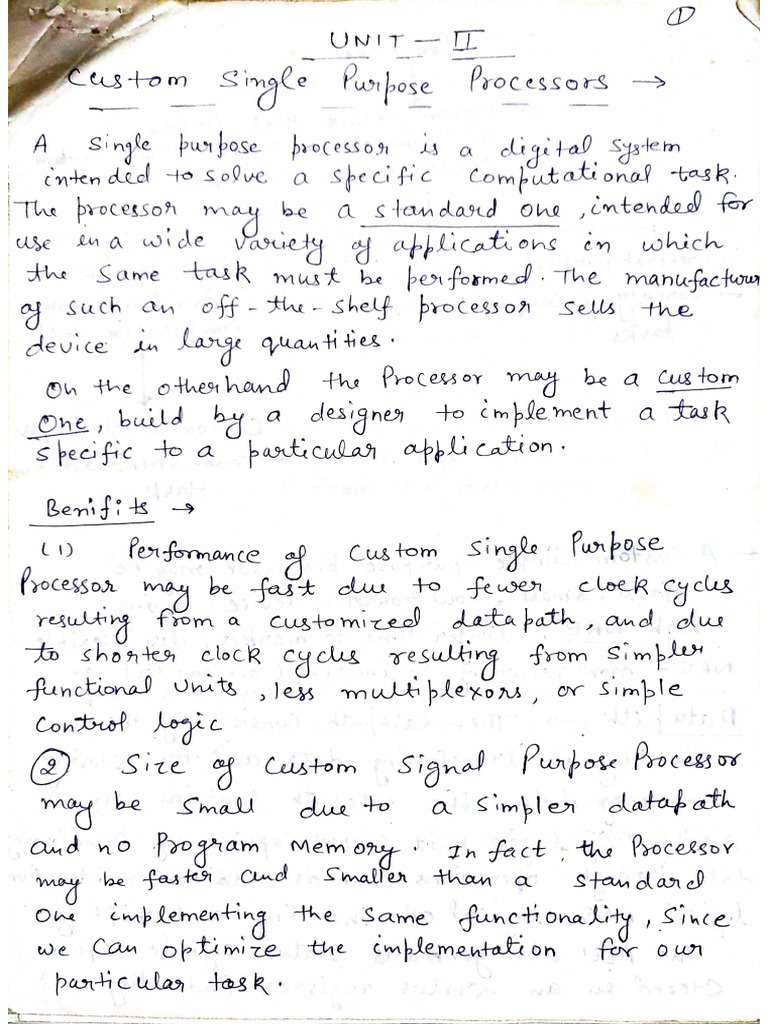 1
UNIT - II
Custom Single Purpose Processors →
A single purpose processor is a digital system
intended to solve a specific computational task.
The processor may be a standard one, intended for
use in a wide variety of applications in which
the same task must be performed. The manufacturer
of such an off-the-shelf processor sells the
device in large quantities.
On the otherhand the Processor may be a custom
One, build by a designer to implement a task
specific to a particular application.
Benifits →
(1) Performance of custom single Purpose
Processor may be fast due to fewer clock cycles
resulting from a customized datapath, and due
to shorter clock cycles resulting from simpler
functional units, less multiplexors, or simple
control logic
2 Size of custom Signal Purpose Processor
may be small due to a simpler datapath
and no Program Memory. In fact, the Processor
may be faster and smaller than a standard
one implementing the same functionality, since
we can optimize the implementation for our
particular task.